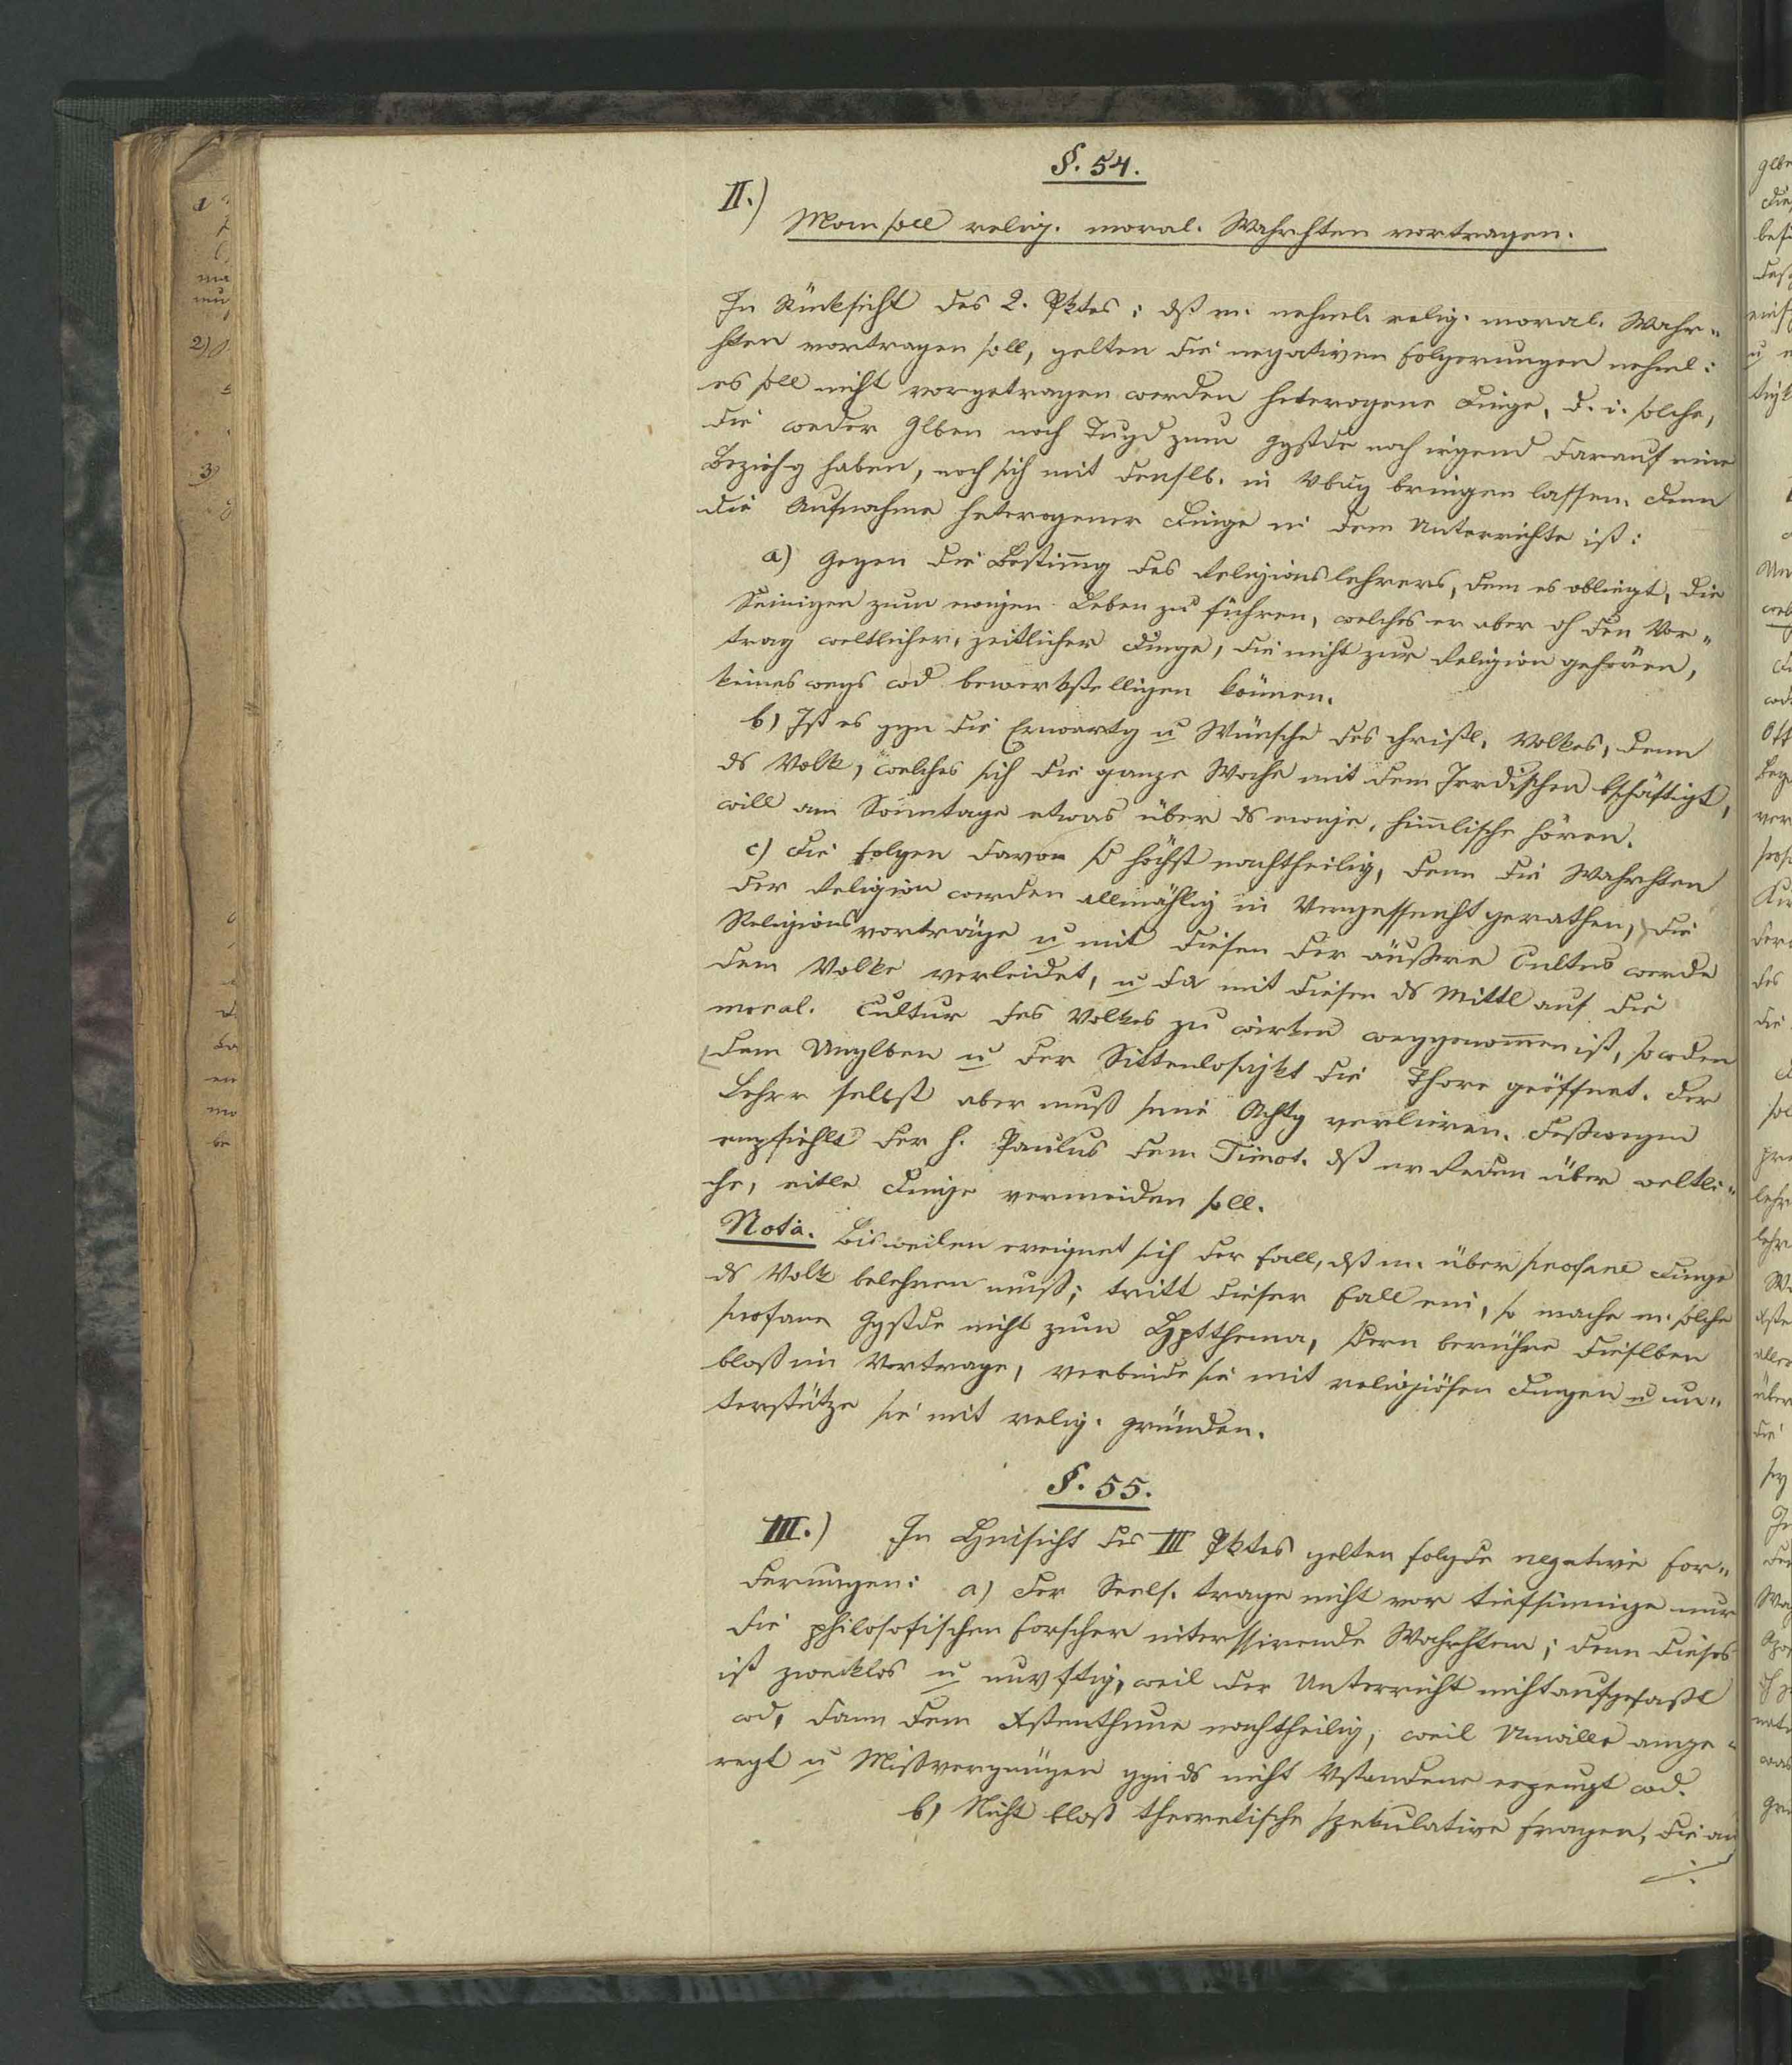 §. 54.
II.)
Man soll relig. moral. Wahrhten vortragen.
In Rücksicht des 2. Pktes: dß m. nehml. relig. moral. Wahr„
hten vortragen soll, gelten die negativen Folgerungen nehml:
es soll nicht vorgetragen werden heterogene Dinge, d. i. solche,
die weder Glben noch Tugd zum Ggstde noch irgend darauf eine
Bezieh-g haben, noch sich mit denslb. in Vbdg bringen lassen. Denn
die Aufnahme heterogener Dinge in dem Unterrichte ist:
a) Gegen die Bestimg des Religionslehrers, dem es obliegt, die
Seinigen zum ewigen Leben zu führen, welches er aber dh den Vor„
trag weltlicher, zeitlicher Dinge, die nicht zur Religion gehören,
keines wegs wd bewerkstelligen können.
b) Ist es ggn die Erwartg u Wünsche des christl. Volkes, denn
ds Volk, welches sich die ganze Woche mit dem Irrdischen bschäftigt,
will am Sonntage etwas über ds ewige, himlische hören.
c) Die Folgen davon sd höchst nachtheilig, denn die Wahrhten
der Religion werden allmählig in Vergessenht gerathen, die
Religionsvorträge u mit diesen der äußere Cultus werde
dem Volke verleidet, u da mit diesen ds Mittl auf die
moral. Cultur des Volkes zu wirken weggenommen ist, so wden
dem Unglben u der Sittenlosigkt die Thore geöffnet. Der
Lehrr selbst aber muß seine Achtg verlieren. Deßwegen
empfiehlt der h. Paulus dem Timot. dß er Reden über weltli„
che, eitle Dinge vermeiden soll.
Nota. Bisweilen ereignet sich der Fall, dß m. über profane Dinge
ds Volk belehren muß; tritt dieser Fall ein, so mache m. solche
profane Ggstde nicht zum Hptthema, sdern berühre dieslben
bloß im Vortrage, verbinde sie mit religiösen Dingen u un„
terstütze sie mit relig. Gründen.
§. 55.
III.) In Hinsicht des III Pktes gelten folgde negative For„
derungen: a) Der Seels. trage nicht vor tiefsinnige nur
die philosofischen Forscher interssirende Wahrhten; denn dieses
ist zwecklos u unvftig, weil der Unterricht nicht aufgefaßt
wd, dann dem Xstenthume nachtheilig, weil Unwille ange„
regt u Mißvergnügen ggn ds nicht Vstandene erzeugt wd.
b) Nicht bloß theoretische spekulative Fragen, die an
./.